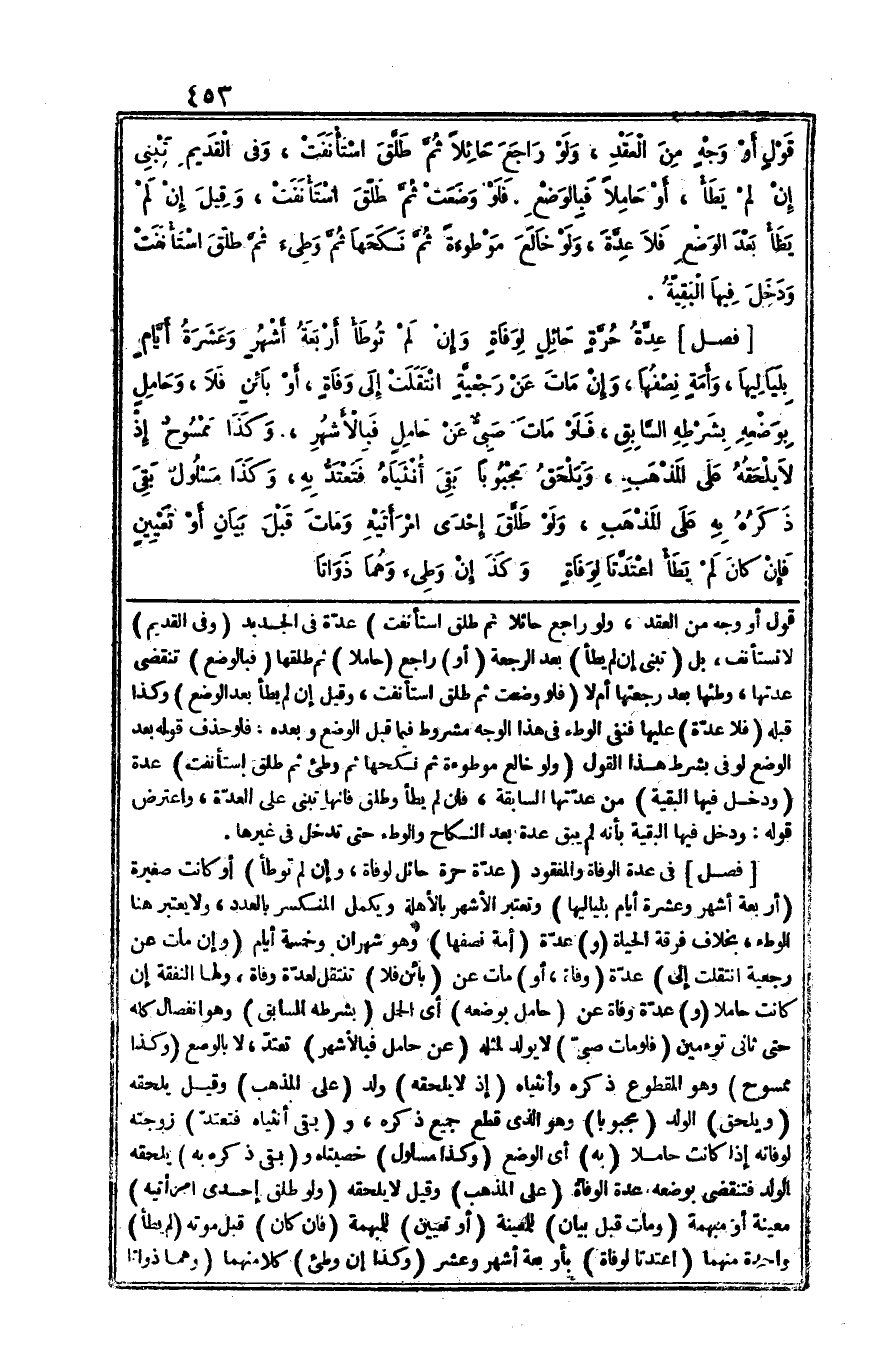 ٤٥٣
قَوْلٍ أَوْ وَجْهٍ مِنَ الْعَقْدِ ، وَلَوْ رَاجَعَ حَائِلاً ثُمَّ طَلَّقَ اسْتَأْنَفَتْ ، وَفى الْقَدِيمِ تَبْنِى
إِنْ لَمْ يَطَأْ ، أَوْ حَامِلاً فَبِالوَضْعِ . فَلَوْ وَضَعَتْ ثُمَّ طَلَّقَ اسْتَأْنَفَتْ ، وَقِيلَ إِنْ لَمْ
يَطَأْ بَعْدَ الوَضْعِ فَلاَ عِدَّةَ ، وَلَوْ خَالَعَ مَوْطوءَةً ثُمَّ نَكَحَهَا ثُمَّ وَطِىءَ ثمَّ طلَّقَ اسْتَأْنَفَتْ
وَدَخَلَ فِيهَا الْبَقِيَّةُ .
[ فصـل ] عِدَّةُ حُرَّةٍ حَائِلٍ لِوَفَاةٍ وَإِنْ لَمْ تُوطَأْ أَرْبَعَةُ أَشْهُرٍ وَعَشَرَةُ أَيَّامٍ
بِلَيَالِيهَا ، وَأَمَةٍ نِصْفُهَا ، وَإِنْ مَاتَ عَنْ رَجْعِيَّةٍ انْتَقَلَتْ إِلَى وَفَاةٍ ، أَوْ بَائنٍ فَلاَ ، وَحَامِلٍ
بِوَضْعِهِ بِشَرْطِهِ السَّابِقِ ، فَلَوْ مَاتَ صَبِىٌّ عَنْ حَامِلٍ فَبِالْأَشْهُرِ ، وَكَذَا مَمْسُوحٌ إِذْ
لاَيلْحَقُهُ عَلَى المَذْهَبِ ، وَيَلْحَقُ مَجْبُوبًا بَقِىَ أُنْثَيَاهُ فَتَعْتَدُّ بِهِ ، وَكَذَا مَسْلُولٌ بَقِىَ
ذَكَرُهُ بِهِ عَلَى المَذْهَبِ ، وَلَوْ طَلَّقَ إِحْدَى امْرَأَتَيْهِ وَمَاتَ قَبْلَ بَيَانٍ أَوْ تَعْيِينٍ
فَإِنْ كانَ لَمْ يَطَأْ اعْتَدَّتَا لِوَفَاةٍ وَكَذَ إِنْ وَطِىءَ وَهُمَا ذَوَاتَا
قول أو وجه من العقد ، ولو راجع حائلا ثم طلق استأنفت ) عدّة فى الجـديد ( وفى القديم )
لاتستأنف ، بل ( تبنى إن لم يطأ ) بعد الرجعة ( أو ) راجع (حاملا ) ثم طلقها ( فبالوضع ) تنقضى
عدتها ، وطئها بعد رجعتها أم لا ( فلو وضعت ثم طلق استأنفت ، وقيل إن لم يطأ بعد الوضع ) وكذا
قبله ( فلا عدّة ) عليها فنفى الوطء فى هذا الوجه مشروط فيما قبل الوضع و بعده : فلو حذف قوله بعد
الوضع لوفى بشرط هـذا القول ( ولو خالع موطوءة ثم نـكحها ثم وطئ ثم طلق إستأنفت ) عدة
( ودخـل فيها البقية ) من عدّتها السابقة ، فان لم يطأ وطلق فانها تبنى على العدّة ، واعترض
قوله : ودخل فيها البقية بأنه لم يبق عدة بعد النـكاح والوطء حتى تدخل فى غيرها .
[ فصـل ] فى عدة الوفاة والمفقود ( عدّة حرة حائل لوفاة ، وإن لم توطأ ) أو كانت صغيرة
( أربعة أشهر وعشرة أيام بلياليها ) وتعتبر الأشهر بالأهلة ويكمل المنـكسر بالعدد ، ولايعتبر هنا
الوطء ، بخلاف فرقة الحياة ( و ) عدّة ( أمة نصفها ) وهو شهران وخمسة أيام ( وإن مات عن
رجعية انتقلت إلى ) عدّة ( وفاة ، أو ) مات عن ( بائن فلا ) تنتقل لعدّة وفاة ، ولها النفقة إن
كانت حاملا ( و ) عدّة وفاة عن ( حامل بوضعه ) أى الحل ( بشرطه السابق ) وهو انفصال كله
حتى ثانى توءمين ( فلو مات صبىّ ) لا يولد لمثله ( عن حامل فبالأشهر ) تعتدّ ، لا بالوضع ( وكذا
ممسوح ) وهو المقطوع ذكره وأنثياه ( إذ لايلحقه ) ولد ( على المذهب ) وقيـل يلحقه
( ويلحق ) الولد ( مجبوبا ) وهو الذى قطع جميع ذكره ، و ( بقى أنثياه فتعتدّ ) زوجته
لوفاته إذا كانت حامـلا ( به ) أى الوضع ( وكذا مسلول ) خصيتاه و ( بقى ذكره به ) يلحقه
الولد فتنقضى بوضعه عدة الوفاة ( على المذهب ) وقيل لا يلحقه ( ولو طلق إحـدى امرأتيه )
معينة أو مبهمة ( ومات قبل بيان ) للمعينة ( أو تعيين ) للمبهمة ( فان كان ) قبل موته ( لم يطأ )
واحدة منهما ( اعتدتا لوفاة ) بأربعة أشهر وعشر ( وكذا إن وطئ ) كلا منهما ( وهمـا ذواتا